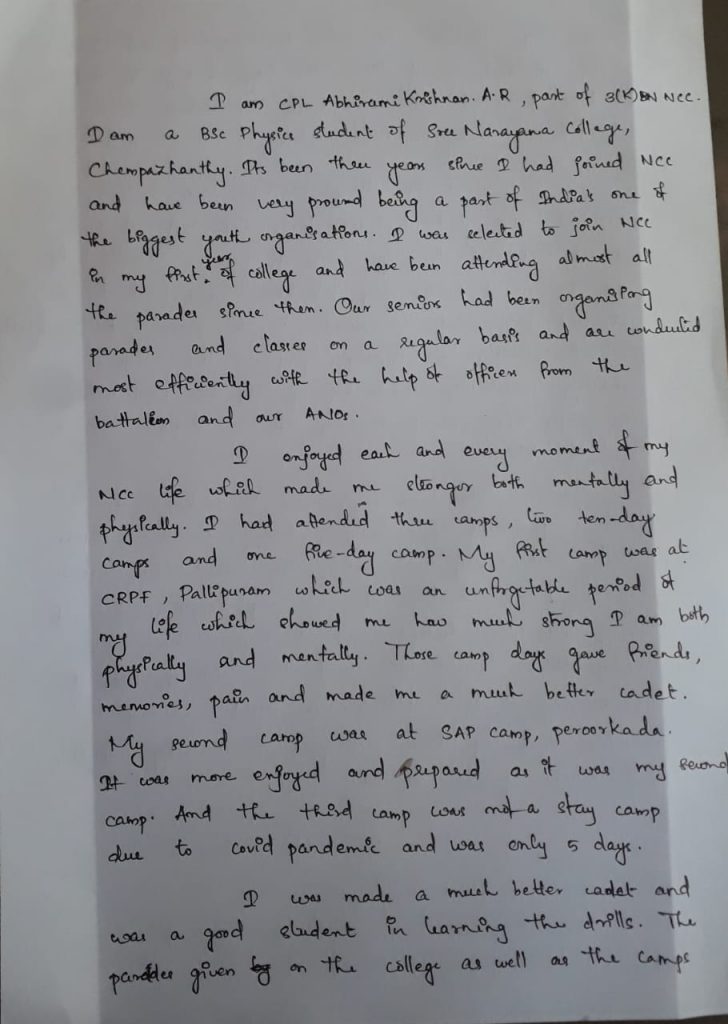 I am CPL Abhirami Krishnan. A.R, part of 3(K)BN NCC.
I am a BSc Physics student of Sree Narayana College,
Chempazhanthy. Its been three years since I had joined NCC
and have been very pround being a part of India's one of
the biggest youth organisations. I was selected to join NCC
in my first year of college and have been attending almost all
the parades since then. Our seniors had been organising
parades and classes on a regular basis and are conducted
most efficiently with the help of officers from the
battalion and our ANOs.
I enjoyed each and every moment of my
NCC life which made me stronger both mentally and
physically. I had attended in three camps, two ten-day
camps and one five-day camp. My first camp was at
CRPF, Pallipuram which was an unforgetable period of
my life which showed me how much strong I am both
physically and mentally. Those camp days gave friends,
memories, pain and made me a much better cadet.
My second camp was at SAP camp, peroorkada.
It was more enjoyed and prepared as it was my second
camp. And the third camp was not a stay camp
due to covid pandemic and was only 5 days.
I was made a much better cadet and
was a good student in learning the drills. The
parades given on the college as well as the camps